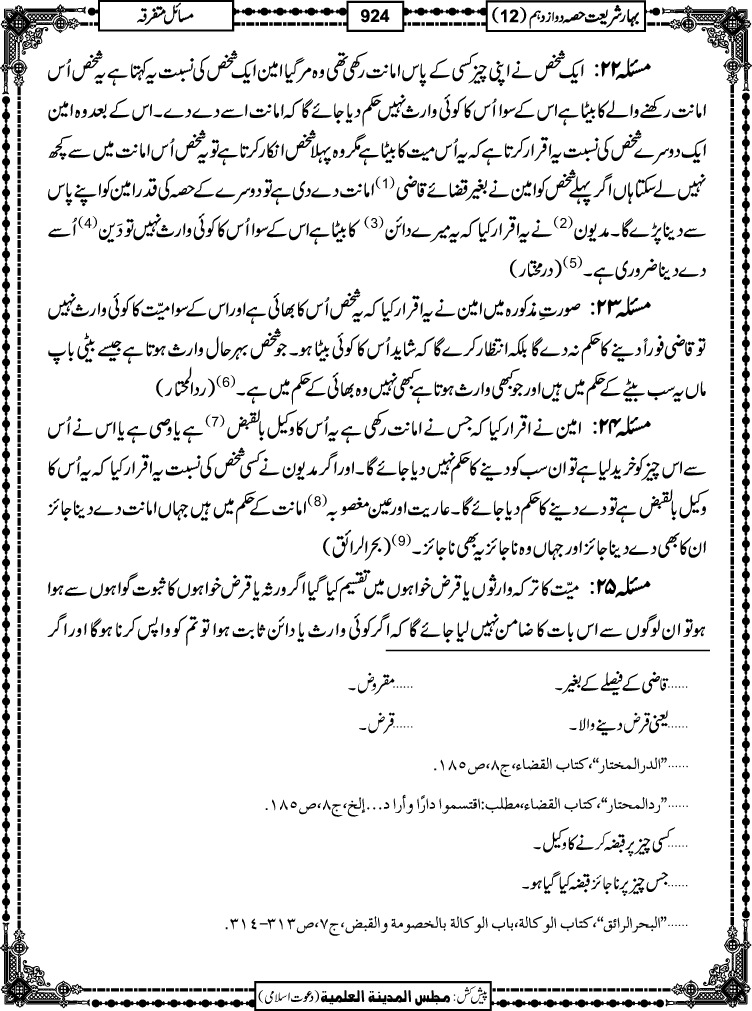 بہار شریعت حصہ دوازدہم (12)
924
مسائل متفرقہ
مسئلہ ۲۲: ایک شخص نے اپنی چیز کسی کے پاس امانت رکھی تھی وہ مر گیا امین ایک شخص کی نسبت یہ کہتا ہے یہ شخص اُس
امانت رکھنے والے کا بیٹا ہے اس کے سوا اُس کا کوئی وارث نہیں حکم دیا جائے گا کہ امانت اسے دے دے۔ اس کے بعد وہ امین
ایک دوسرے شخص کی نسبت یہ اقرار کرتا ہے کہ یہ اُس میت کا بیٹا ہے مگر وہ پہلا شخص انکار کرتا ہے تو یہ شخص اُس امانت میں سے کچھ
نہیں لے سکتا ہاں اگر پہلے شخص کو امین نے بغیر قضائے قاضی (1) امانت دے دی ہے تو دوسرے کے حصہ کی قدر امین کو اپنے پاس
سے دینا پڑے گا۔ مدیون (2) نے یہ اقرار کیا کہ یہ میرے دائن (3) کا بیٹا ہے اس کے سوا اُس کا کوئی وارث نہیں تو دَین (4) اُسے
دے دینا ضروری ہے۔ (5) (درمختار)
مسئلہ ۲۳: صورتِ مذکورہ میں امین نے یہ اقرار کیا کہ یہ شخص اُس کا بھائی ہے اور اس کے سوا میّت کا کوئی وارث نہیں
تو قاضی فوراً دینے کا حکم نہ دے گا بلکہ انتظار کرے گا کہ شاید اُس کا کوئی بیٹا ہو۔ جو شخص بہرحال وارث ہوتا ہے جیسے بیٹی باپ
ماں یہ سب بیٹے کے حکم میں ہیں اور جو کبھی وارث ہوتا ہے کبھی نہیں وہ بھائی کے حکم میں ہے۔ (6) (ردالمحتار)
مسئلہ ۲۴: امین نے اقرار کیا کہ جس نے امانت رکھی ہے یہ اُس کا وکیل بالقبض (7) ہے یا وصی ہے یا اس نے اُس
سے اس چیز کو خرید لیا ہے تو ان سب کو دینے کا حکم نہیں دیا جائے گا۔ اور اگر مدیون نے کسی شخص کی نسبت یہ اقرار کیا کہ یہ اُس کا
وکیل بالقبض ہے تو دے دینے کا حکم دیا جائے گا۔ عاریت اور عین مغصوبہ (8) امانت کے حکم میں ہیں جہاں امانت دے دینا جائز
ان کا بھی دے دینا جائز اور جہاں وہ ناجائز یہ بھی ناجائز۔ (9) (بحرالرائق)
مسئلہ ۲۵: میّت کا ترکہ وارثوں یا قرض خواہوں میں تقسیم کیا گیا اگر ورثہ یا قرض خواہوں کا ثبوت گواہوں سے ہوا
ہو تو ان لوگوں سے اس بات کا ضامن نہیں لیا جائے گا کہ اگر کوئی وارث یا دائن ثابت ہوا تو تم کو واپس کرنا ہوگا اور اگر
......قاضی کے فیصلے کے بغیر۔ ......مقروض۔
......یعنی قرض دینے والا۔ ......قرض۔
......”الدرالمختار“، کتاب القضاء، ج۸، ص۱۸۵.
......”ردالمحتار“، کتاب القضاء، مطلب: اقتسموا دارًا وأراد...إلخ، ج۸، ص۱۸۵.
......کسی چیز پر قبضہ کرنے کا وکیل۔
......جس چیز پر ناجائز قبضہ کیا گیا ہو۔
......”البحرالرائق“، کتاب الوکالة، باب الوکالة بالخصومة والقبض، ج۷، ص۳۱۳-۳۱٤.
پیش کش: مجلس المدینة العلمیة (دعوت اسلامی)